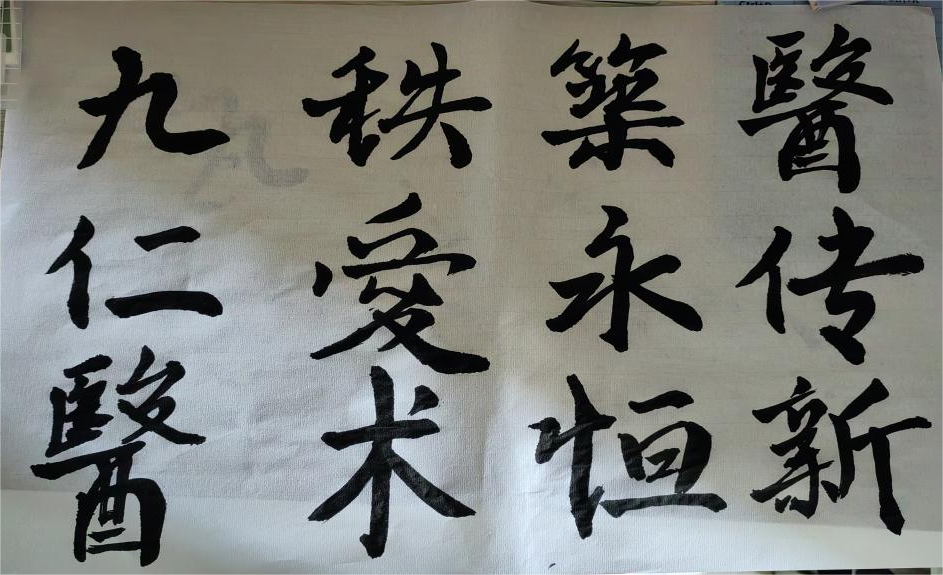 九秩築醫
仁愛永传
醫术恒新